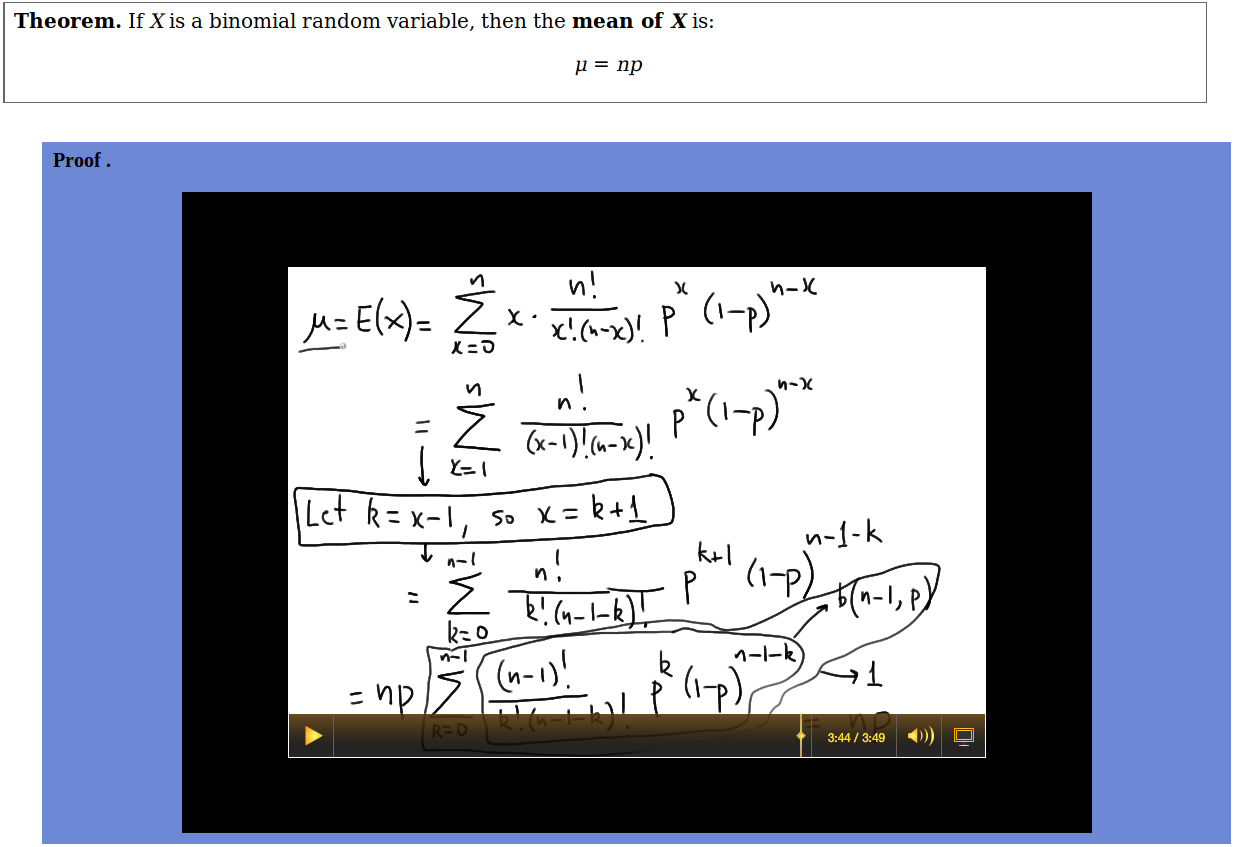 Theorem. If X is a binomial random variable, then the mean of X is:
μ = np
Proof .
μ = E(x) = ∑_{x=0}^{n} x · \frac{n!}{x!(n-x)!} p^x (1-p)^{n-x}
= ∑_{x=1}^{n} \frac{n!}{(x-1)!(n-x)!} p^x (1-p)^{n-x}
Let k = x-1, so x = k+1
= ∑_{k=0}^{n-1} \frac{n!}{k!(n-1-k)!} p^{k+1} (1-p)^{n-1-k}
b(n-1, p)
= np ∑_{k=0}^{n-1} \frac{(n-1)!}{k!(n-1-k)!} p^k (1-p)^{n-1-k} → 1
= np
3:44 / 3:49